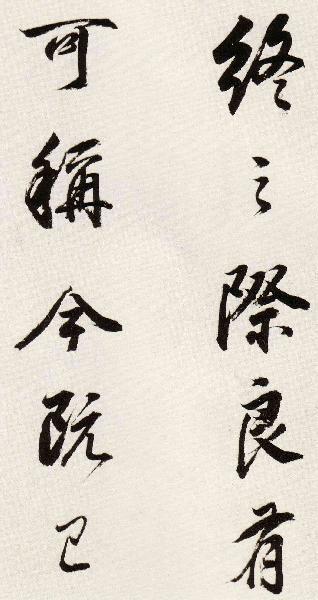 終之際良有
可稱今既已